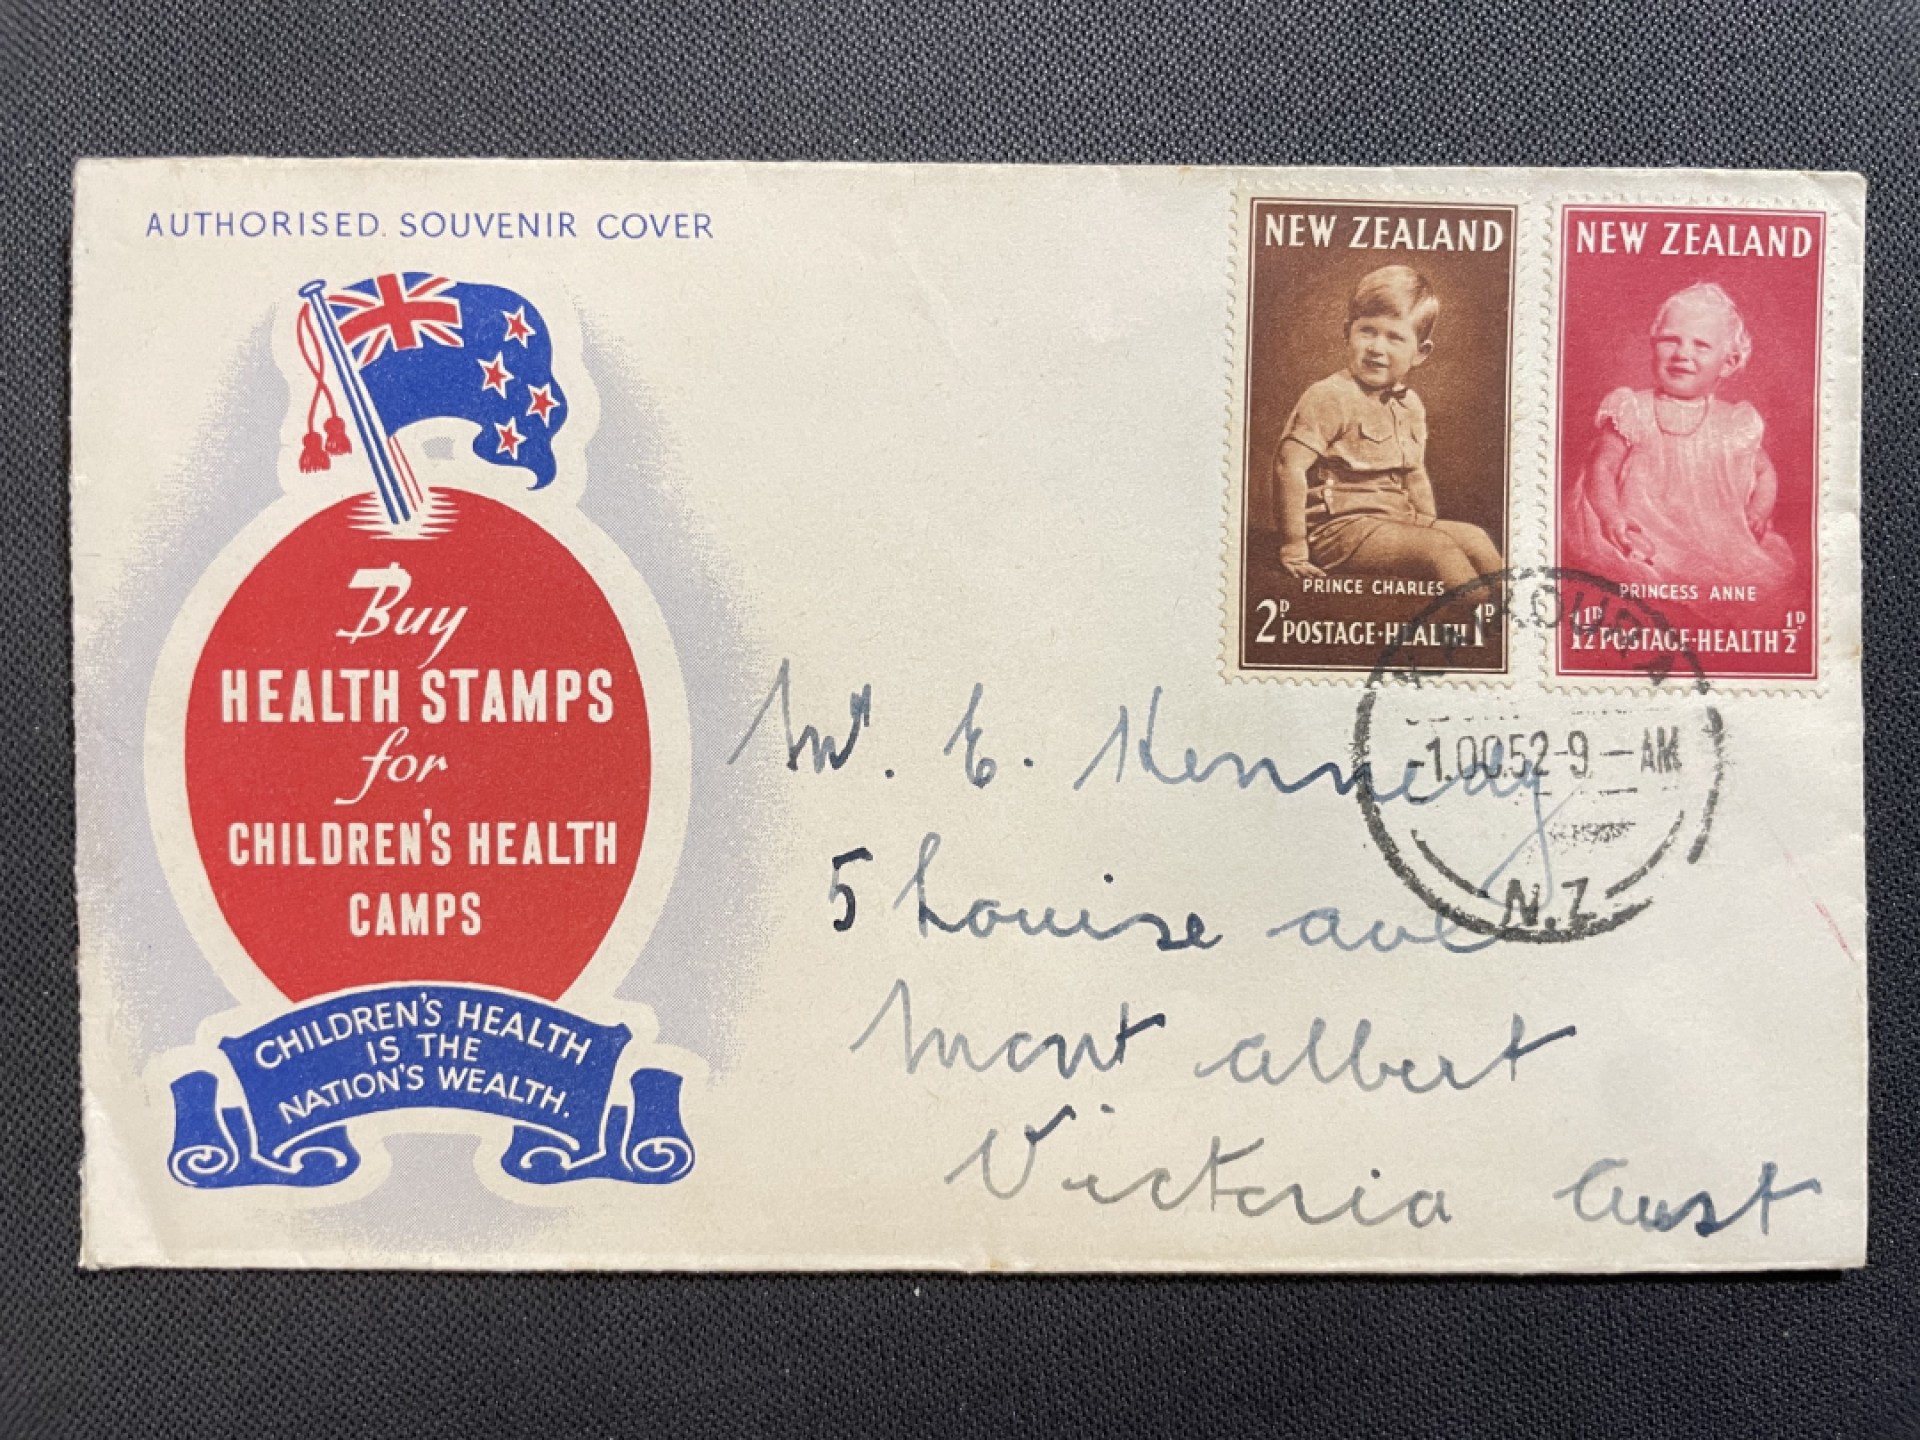 AUTHORISED SOUVENIR COVER
Buy
HEALTH STAMPS
for
CHILDREN'S HEALTH
CAMPS
CHILDREN'S HEALTH
IS THE
NATION'S WEALTH.
NEW ZEALAND
PRINCE CHARLES
2D POSTAGE·HEALTH 1D
NEW ZEALAND
PRINCESS ANNE
1½D POSTAGE·HEALTH ½D
KAIKOURA
-1.OC.52-9 - AM
N.Z
Mr. E. Kennedy
5 Louise ave
Mont albert
Victoria Aust